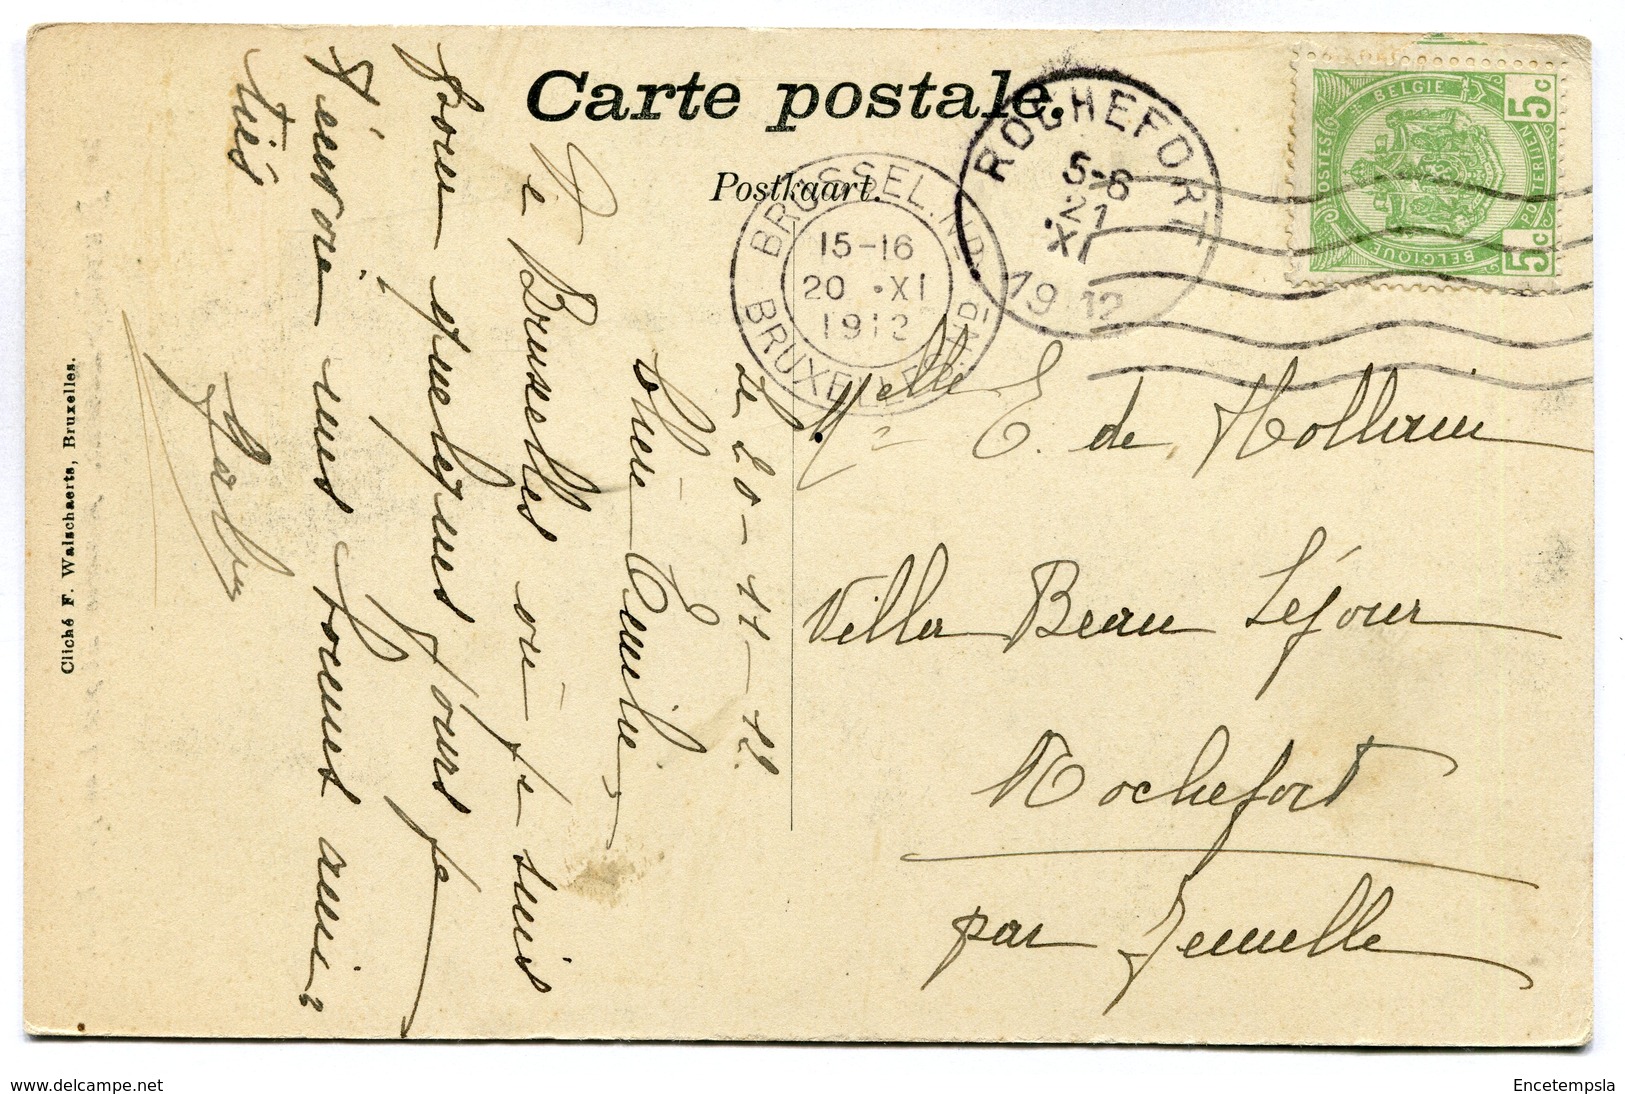 Carte postale.
Postkaart.
BRUSSEL.ND.
15-16
20 .XI
1912
BRUXELLES.(ND)
ROCHEFORT
5-6
21
XI
1912
BELGIE
POSTES
POSTERIJEN
BELGIQUE
5c
5c
Melle E. de Hollain
Villa Beau Séjour
Rochefort
par Jemelle
Le 20-11-12.
Chère Emilie,
De Bruxelles où je suis
pour quelques jours je
t'envoie mes bonnes ami-
tiés
Cliché F. Walschaerts, Bruxelles.
www.delcampe.net
Encetempsla